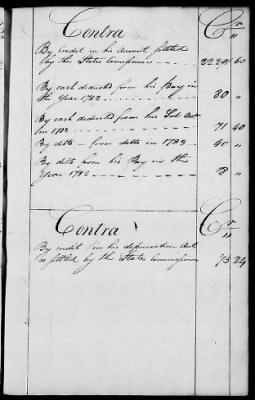 Contra Cr
By Credit in his Account settled
by the State Commissioner - - 2229 60
By cash deducted from his Pay in
the Year 1782 - - - - 80 "
By cash deducted from his Sub. Acct
for 1782 - - - - 71 40
By ditto from ditto in 1783 - -
By ditto from his Pay in the
Year 1782 - - - - 3 "
Contra Cr
By credit in his depreciation Act
as settled by the State Commissioner 73 24